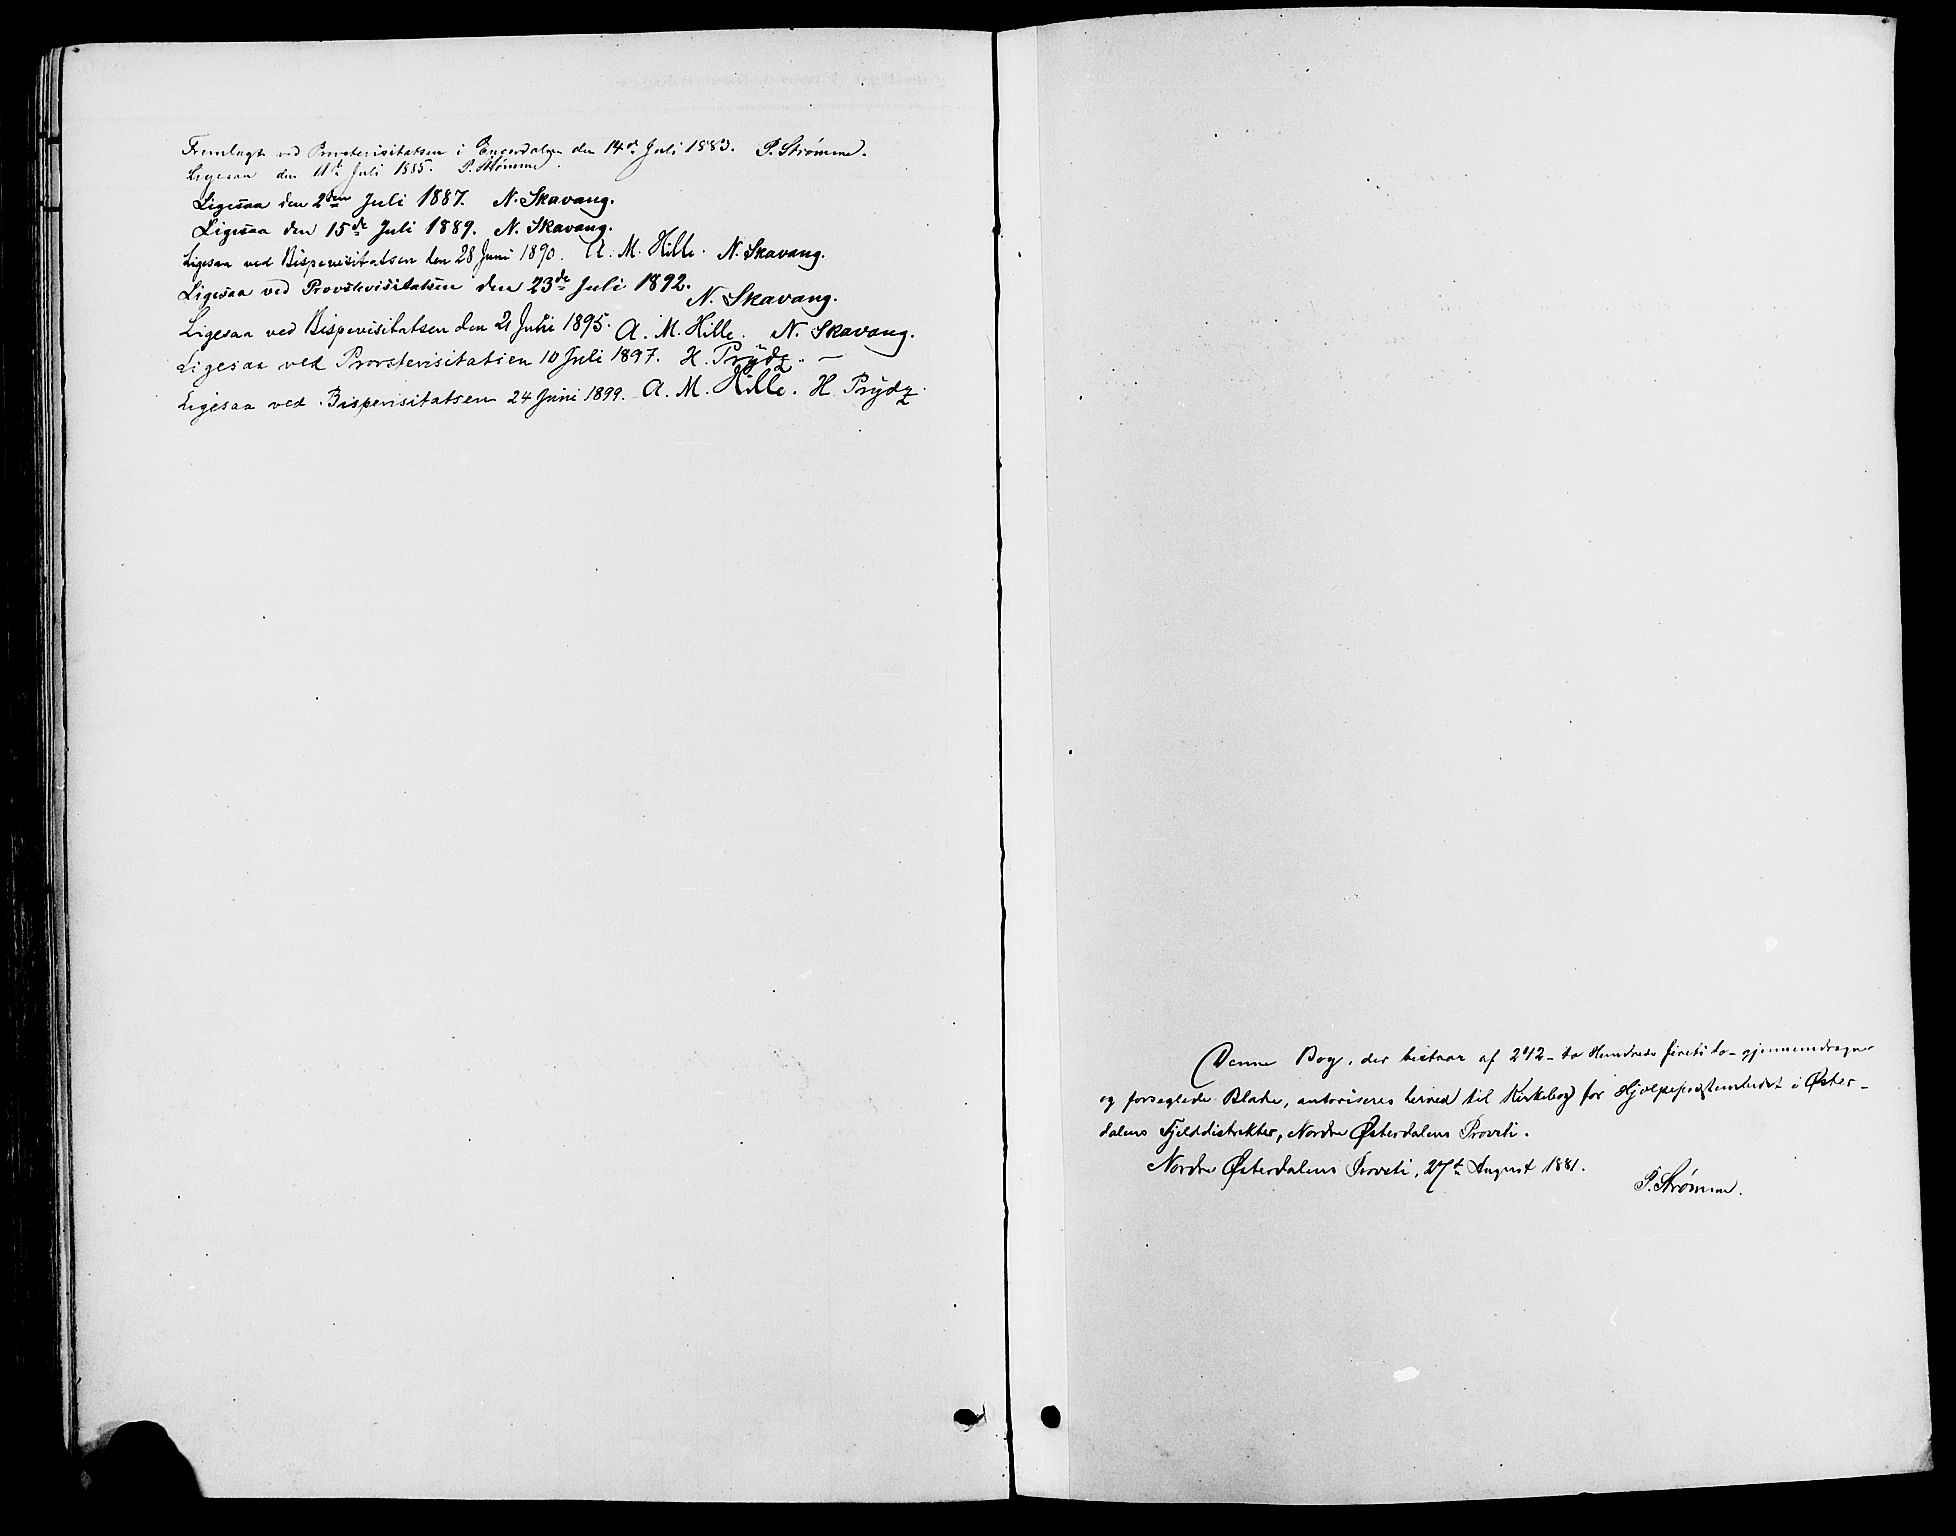 Fremlagt ved Provstevisitatsen i Engerdalen den 14de Juli 1883. P. Strømme.
Ligesaa den 11te Juli 1885. P. Strømme.
Ligesaa den 2den Juli 1887. N. Skavang.
Ligesaa den 15de Juli 1889. N. Skavang.
Ligesaa ved Bispevisitatsen den 28 Juni 1890. A. M. Hille. N. Skavang.
Ligesaa ved Provstevisitatsen den 23de Juli 1892.
N. Skavang.
Ligesaa ved Bispevisitatsen den 21 Juli 1895. A. M. Hille. N. Skavang.
Ligesaa ved Provstevisitatsen 10 Juli 1897. H. Prydz. —
Ligesaa ved Bispevisitatsen 24 Juni 1899. A. M. Hille. H. Prydz.
Denne Bog, der bestaar af 242 - to Hundrede fireti to - gjennemdragne
og forseglede Blade, autoriseres herved til Kirkebog for Hjælpepræstembedet i Øster-
dalens Fjelddistrikter, Nordre Østerdalens Provsti.
Nordre Østerdalens Provsti, 27te August 1881.
P. Strømme.